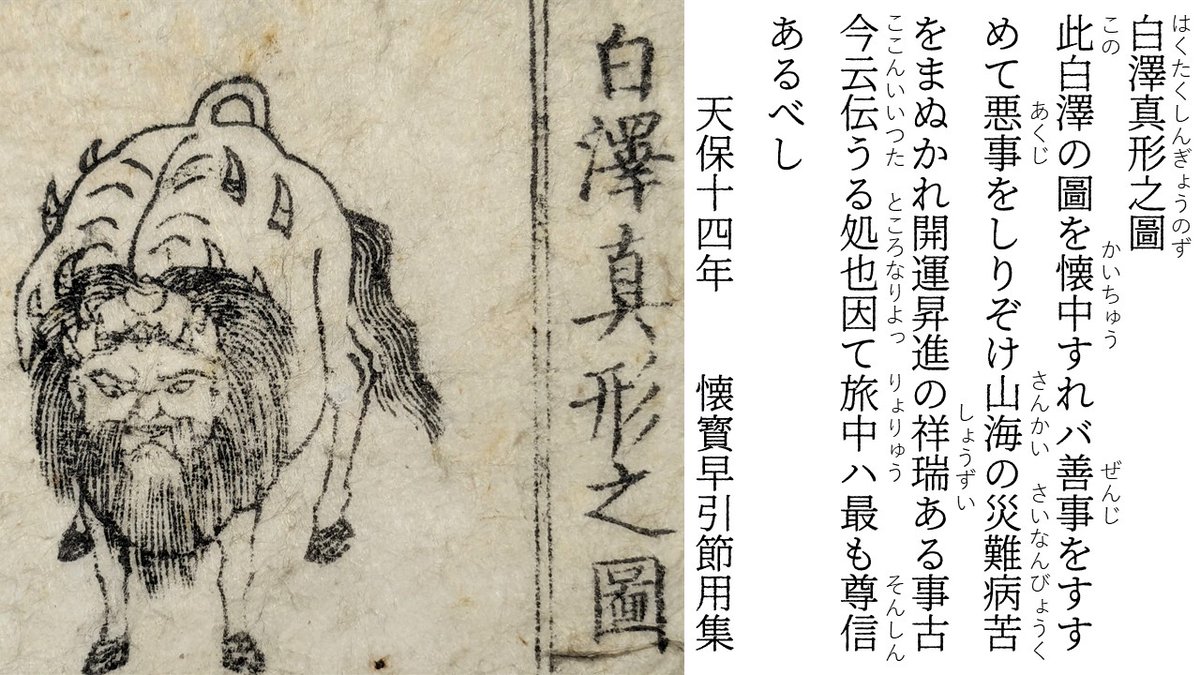 はくたくしんぎょうのず
白澤真形之圖
この かいちゅう ぜんじ
此白澤の圖を懐中すれバ善事をすす
あくじ さんかい さいなんびょうく
めて悪事をしりぞけ山海の災難病苦
しょうずい
をまぬかれ開運昇進の祥瑞ある事古
ここんいいつた ところなりよっ りょりゅう そんしん
今云伝うる処也因て旅中ハ最も尊信
あるべし
天保十四年 懐寳早引節用集
白澤真形之圖